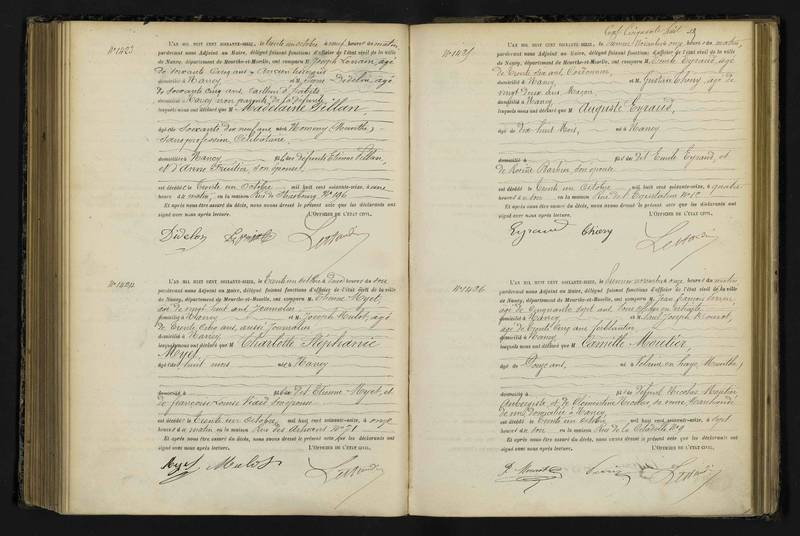 N° 1423
L'AN MIL HUIT CENT SOIXANTE-SEIZE, le trente un octobre à neuf heures du matin,
pardevant nous Adjoint au Maire, délégué faisant fonctions d'officier de l'état civil de la ville
de Nancy, département de Meurthe-et-Moselle, ont comparu M. Joseph Lemoin, âgé
de soixante cinq ans,
domicilié à Nancy et M. Didelon, âgé
de soixante cinq ans, tailleur d'habits
domicilié à Nancy non parents de la défunte
lesquels nous ont déclaré que M Madelaine Villan,
âgée de soixante dix neuf ans née à Homeny Meurthe,
sans profession Célibataire,
domiciliée à Nancy fille des défunts Etienne Villan,
et d'Anne son épouse,
est décédé le trente un octobre mil huit cent soixante-seize, à une
heure du matin, en la maison Rue de Strasbourg N° 196
Et après nous être assuré du décès, nous avons dressé le présent acte que les déclarants ont
signé avec nous après lecture. L'OFFICIER DE L'ÉTAT CIVIL,
Didelon
N° 1424
L'AN MIL HUIT CENT SOIXANTE-SEIZE, le trente un octobre à deux heures du soir
pardevant nous Adjoint au Maire, délégué faisant fonctions d'officier de l'état civil de la ville
de Nancy, département de Meurthe-et-Moselle, ont comparu M. Etienne Myet,
âgé de vingt huit ans journalier
domicilié à Nancy et M. Joseph Malot, âgé
de trente cinq ans, aussi journalier
domicilié à Nancy
lesquels nous ont déclaré que M Charlotte Stéphanie
Myet
âgée de huit mois née à Nancy
domicilié à fille de dit Etienne Myet, et
de Françoise Louise Viard son épouse
est décédé le trente un octobre mil huit cent soixante-seize, à onze
heures du matin, en la maison Rue des Artisans N° 71
Et après nous être assuré du décès, nous avons dressé le présent acte que les déclarants ont
signé avec nous après lecture. L'OFFICIER DE L'ÉTAT CIVIL,
Myet Malot
Cent Cinquante huit
N° 1425
L'AN MIL HUIT CENT SOIXANTE-SEIZE, le premier novembre à onze heures du matin,
pardevant nous Adjoint au Maire, délégué faisant fonctions d'officier de l'état civil de la ville
de Nancy, département de Meurthe-et-Moselle, ont comparu M. Emile Eyraud, âgé
de trente deux ans Cordonnier,
domicilié à Nancy et M. Gustave Thiery, âgé de
vingt deux ans, Maçon,
domicilié à Nancy
lesquels nous ont déclaré que M Auguste Eyraud,
âgé de dix huit Mois, né à Nancy
domicilié à fils de dit Emile Eyraud, et
de Barbier, son épouse
est décédé le trente un octobre mil huit cent soixante-seize, à quatre
heures du soir en la maison Rue de l'Equitation N° 12
Et après nous être assuré du décès, nous avons dressé le présent acte que les déclarants ont
signé avec nous après lecture. L'OFFICIER DE L'ÉTAT CIVIL,
Eyraud Thiery
N° 1426
L'AN MIL HUIT CENT SOIXANTE-SEIZE, le premier novembre à onze heures du matin
pardevant nous Adjoint au Maire, délégué faisant fonctions d'officier de l'état civil de la ville
de Nancy, département de Meurthe-et-Moselle, ont comparu M. Jean François
âgé de cinquante sept ans
domicilié à Nancy et M. Paul Joseph
âgé de trente cinq ans, ferblantier
domicilié à Nancy
lesquels nous ont déclaré que M Camille Moutier,
âgé de Douze ans, né à Velaine en haye, Meurthe,
domicilié à fils de défunt Nicolas Moutier
Aubergiste, et de Clémentine Nicolas sa veuve
domiciliée à Nancy
est décédé le trente un octobre mil huit cent soixante-seize, à sept
heures du soir en la maison Rue de la Citadelle N° 9
Et après nous être assuré du décès, nous avons dressé le présent acte que les déclarants ont
signé avec nous après lecture. L'OFFICIER DE L'ÉTAT CIVIL,